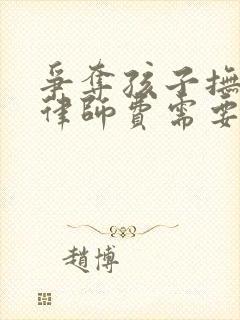 爭奪孩子撫
律師費需要
趙博